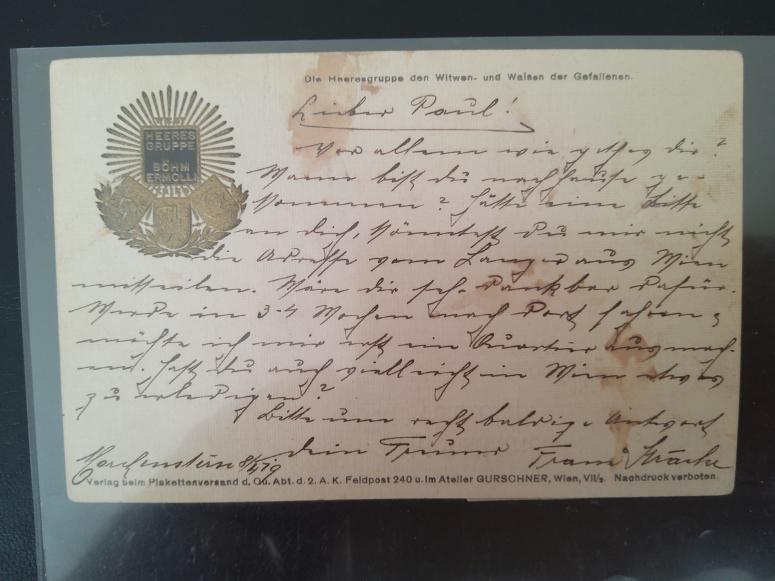 Die Heeresgruppe den Witwen- und Waisen der Gefallenen.
HEERES
GRUPPE
BÖHM
ERMOLLI
Lieber Paul!
Vor allem wie geht es dir?
Wann bist du nachhause ge-
kommen? Hätte eine Bitte
an dich, könntest du mir nicht
die Adresse vom Langer aus Wien
mitteilen. Wäre dir sehr dankbar dafür.
Werde in 3-4 Wochen nach dort fahren,
möchte ich mir erst ein Quartier ausmach-
en. Hast du auch vielleicht in Wien etwas
zu erledigen?
Bitte um recht baldige Antwort
dein Franz
Verlag beim Plakettenversand d. Qu. Abt. d. 2. A. K. Feldpost 240 u. im Atelier GURSCHNER, Wien, VII/2. Nachdruck verboten.